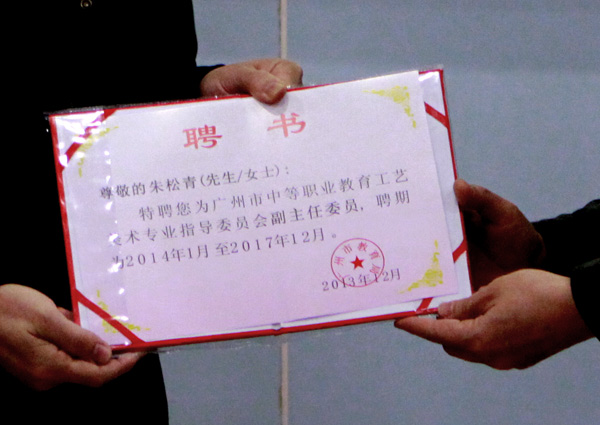 聘 书
尊敬的朱松青(先生/女士):
特聘您为广州市中等职业教育工艺
美术专业指导委员会副主任委员,聘期
为2014年1月至2017年12月。
广州市教育局
2013年12月